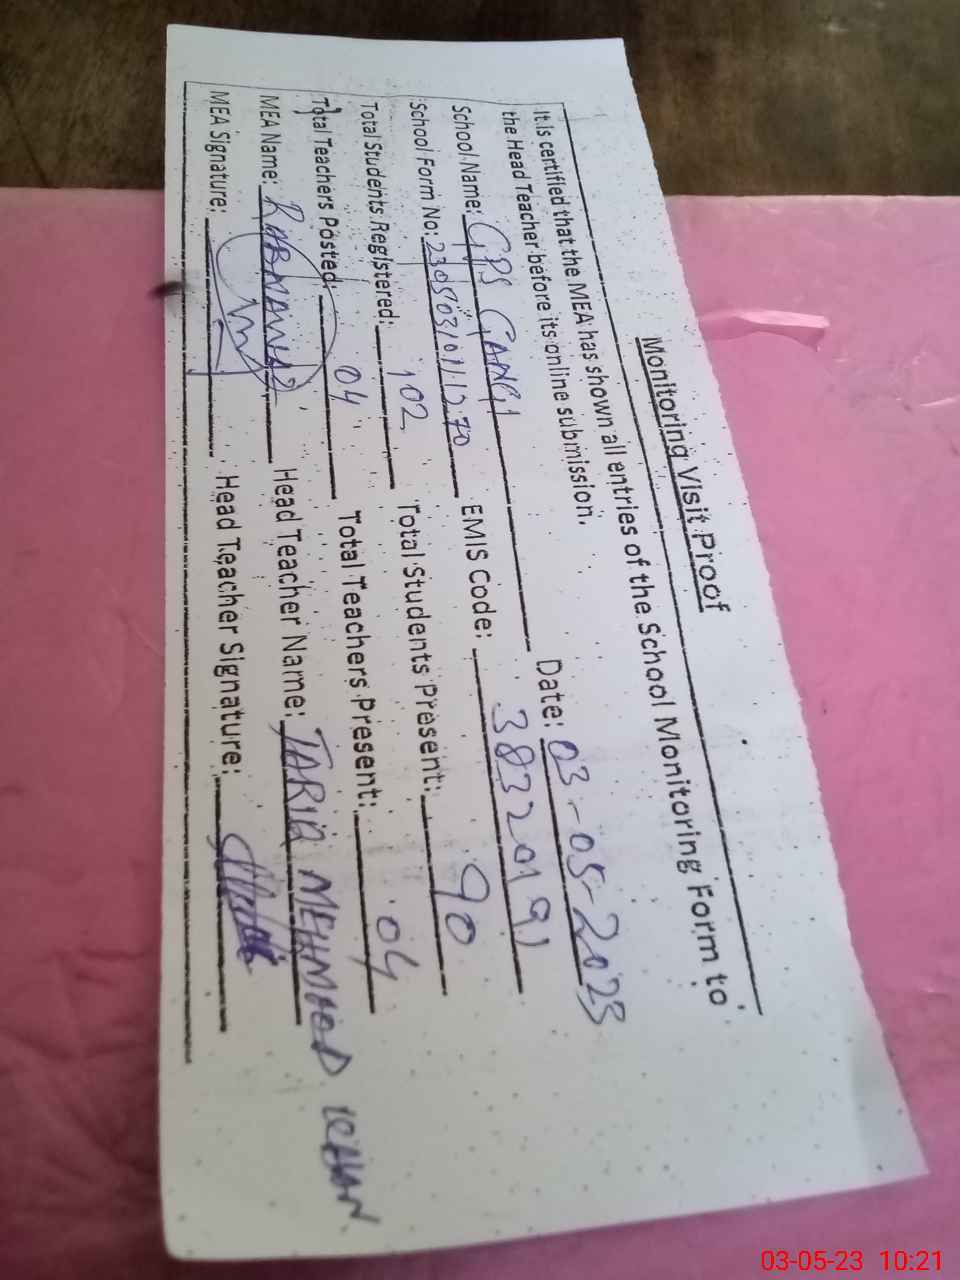 Monitoring Visit Proof
It is certified that the MEA has shown all entries of the School Monitoring Form to
the Head Teacher before its online submission.
School Name: GPS GANGI Date: 03-05-2023
School Form No: EMIS Code: 38320191
Total Students Registered: 102 Total Students Present: 90
Total Teachers Posted: 04 Total Teachers Present: 04
MEA Name: Head Teacher Name: TARIQ MEHMOOD KHAN
MEA Signature: Head Teacher Signature:
03-05-23 10:21